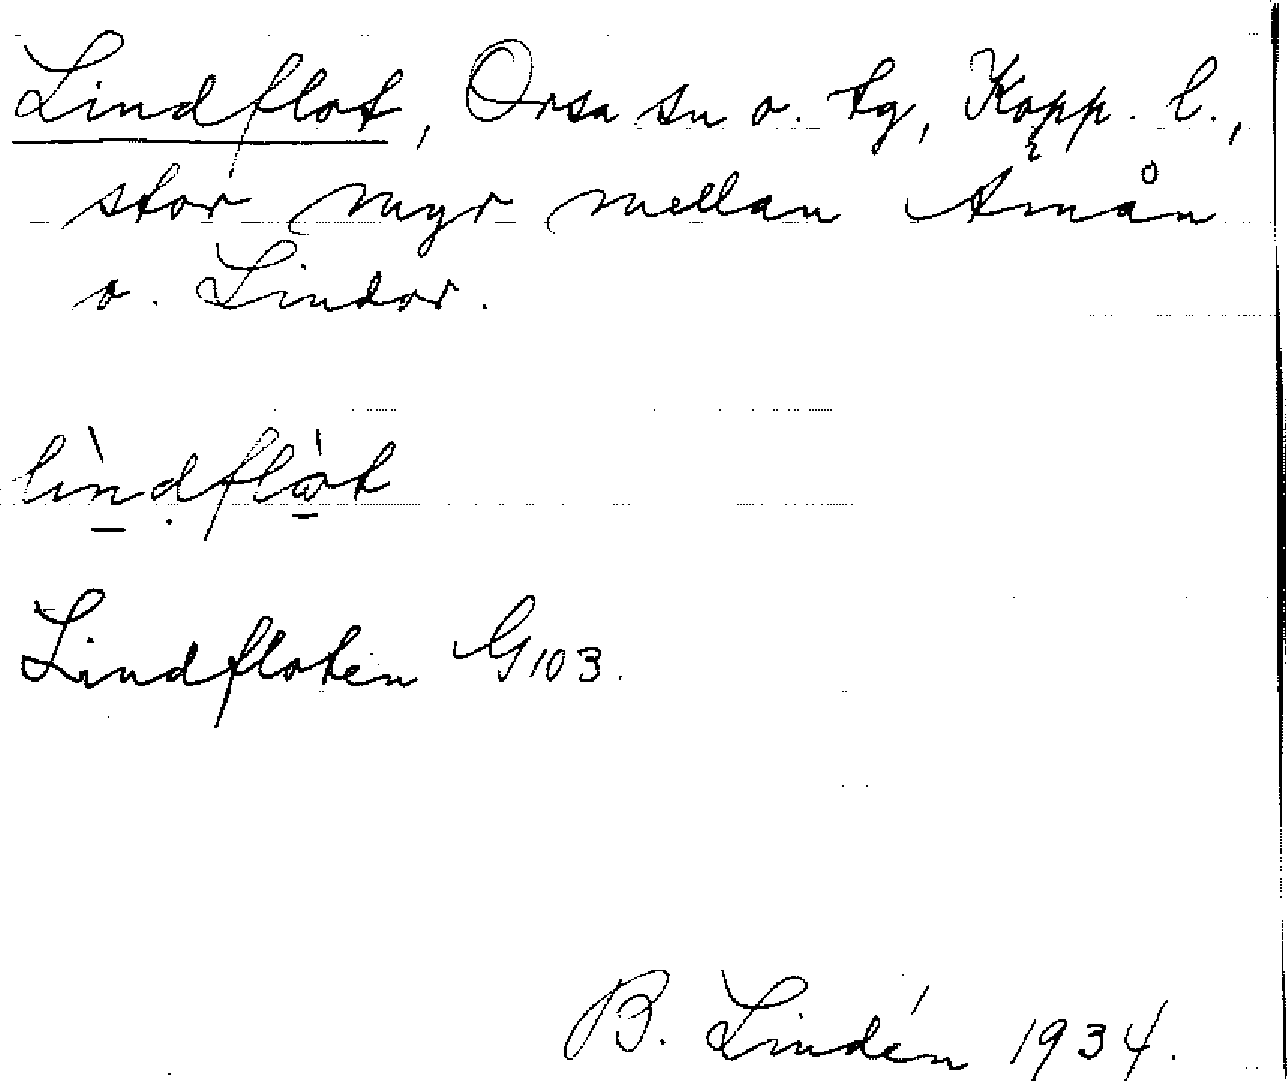 Lindflot, Orsa sn o. tg, Kopp. l.,
stor myr mellan Ämån
o. Lindor.
lìndflòt
Lindfloten G103.
B. Lindén 1934.